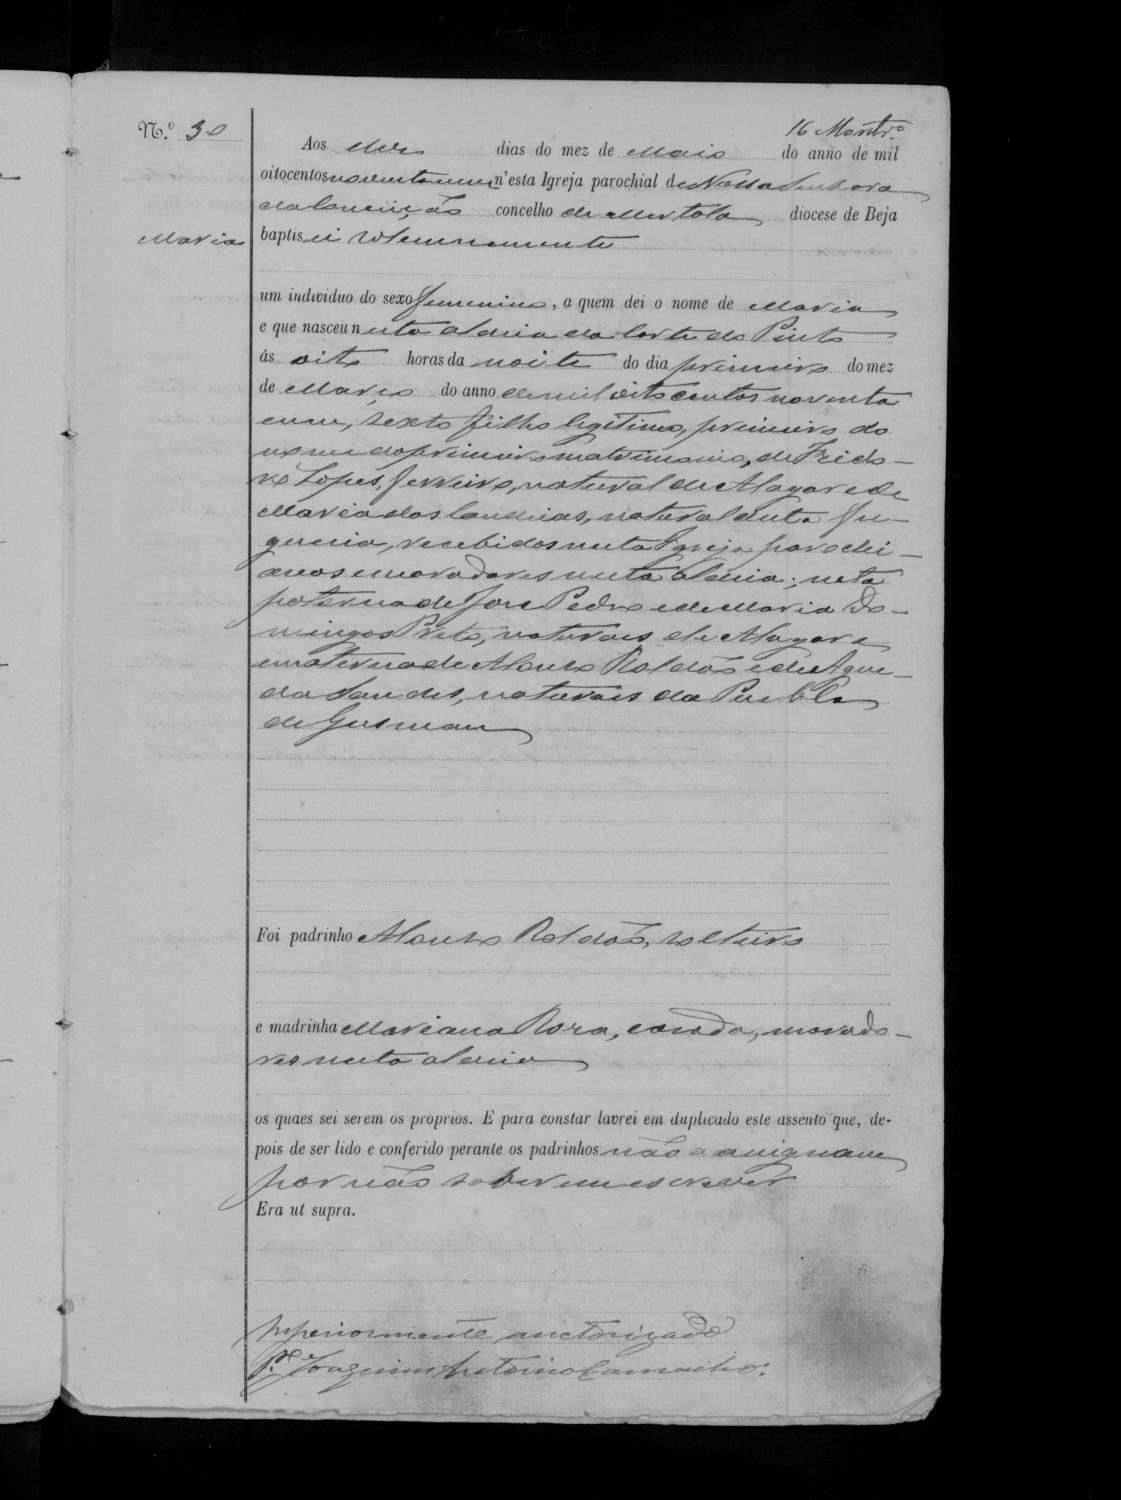 N.º 30
16 Montr.º
Aos dez dias do mez de Maio do anno de mil
oitocentos noventa e um n'esta Igreja parochial de Nossa Senhora
da Conceição concelho de Mertola diocese de Beja
Maria
baptisei solemnemente
um individuo do sexo femenino, a quem dei o nome de Maria
e que nasceu nesta aldeia da Corte do Pinto
ás oito horas da noite do dia primeiro do mez
de Março do anno de mil oitocentos noventa
e um, sexto filho legitimo, primeiro do
nome do primeiro matrimonio, de Izido-
ro Lopes, ferreiro, natural de Alagar e de
Maria das Candeias, natural desta fre-
guezia, recebidos nesta Igreja parochi-
anos e moradores nesta aldeia; neta
paterna de José Pedro e de Maria Do-
mingos Prêta, naturaes de Alagar e
e materna de Alonso Roldão e de Ague-
da Sandes, naturaes da Puebla
de Gusman
Foi padrinho Alonso Roldão, solteiro
e madrinha Mariana Roza, casada, morado-
res nesta aldeia
os quaes sei serem os proprios. E para constar lavrei em duplicado este assento que, de-
pois de ser lido e conferido perante os padrinhos não assignam
por não saberem escrever
Era ut supra.
Superiormente auctorizado
P.e Joaquim Antonio Camacho.